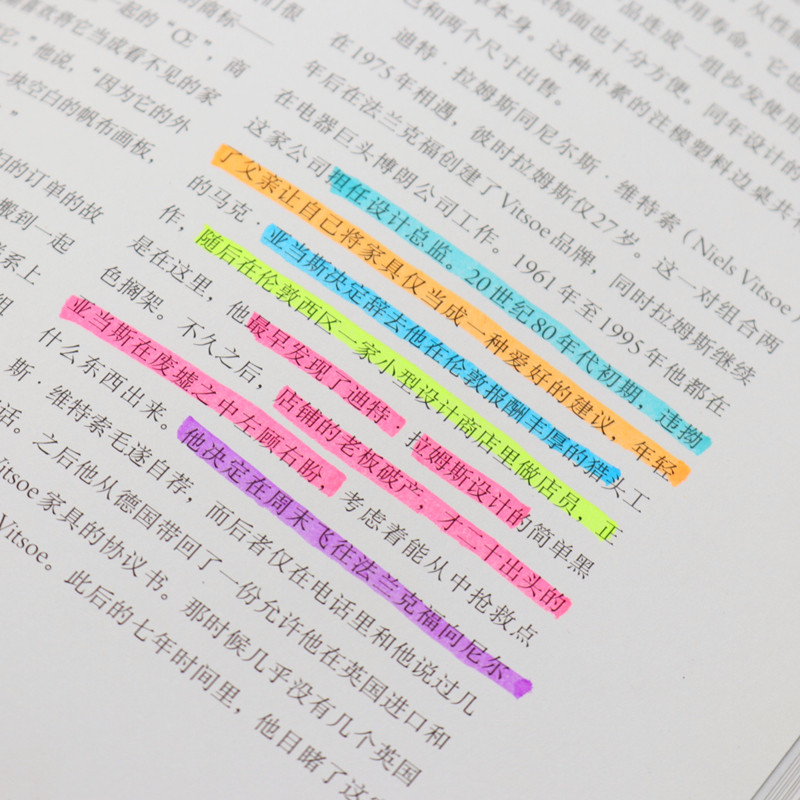 们很
的商标——
一起的“Œ”，商
喜欢将它当成看不见的家
它，”他说，“因为它的外
一块空白的帆布画板，
的订单的故
搬到一起
系上
组
从性能
使用寿命。它也
品连成一组沙发使用
椅面也十分方便。同年设计的
单本身。这种朴素的注模塑料边桌共有
和两个尺寸出售。
迪特·拉姆斯同尼尔斯·维特索（Niels Vitsoe）
在1975年相遇，彼时拉姆斯仅27岁。这一对组合两
年后在法兰克福创建了Vitsoe品牌，同时拉姆斯继续
在电器巨头博朗公司工作。1961年至1995年他都在
这家公司担任设计总监。20世纪80年代初期，违拗
了父亲让自己将家具仅当成一种爱好的建议，年轻
的马克·亚当斯决定辞去他在伦敦报酬丰厚的猎头工
作，随后在伦敦西区一家小型设计商店里做店员，正
是在这里，他最早发现了迪特·拉姆斯设计的简单黑
色搁架。不久之后，店铺的老板破产，才二十出头的
亚当斯在废墟之中左顾右盼，考虑着能从中抢救点
什么东西出来。他决定在周末飞往法兰克福向尼尔
斯·维特索毛遂自荐，而后者仅在电话里和他说过几
话。之后他从德国带回了一份允许他在英国进口和
Vitsoe家具的协议书。那时候几乎没有几个英国
Vitsoe。此后的七年时间里，他目睹了这